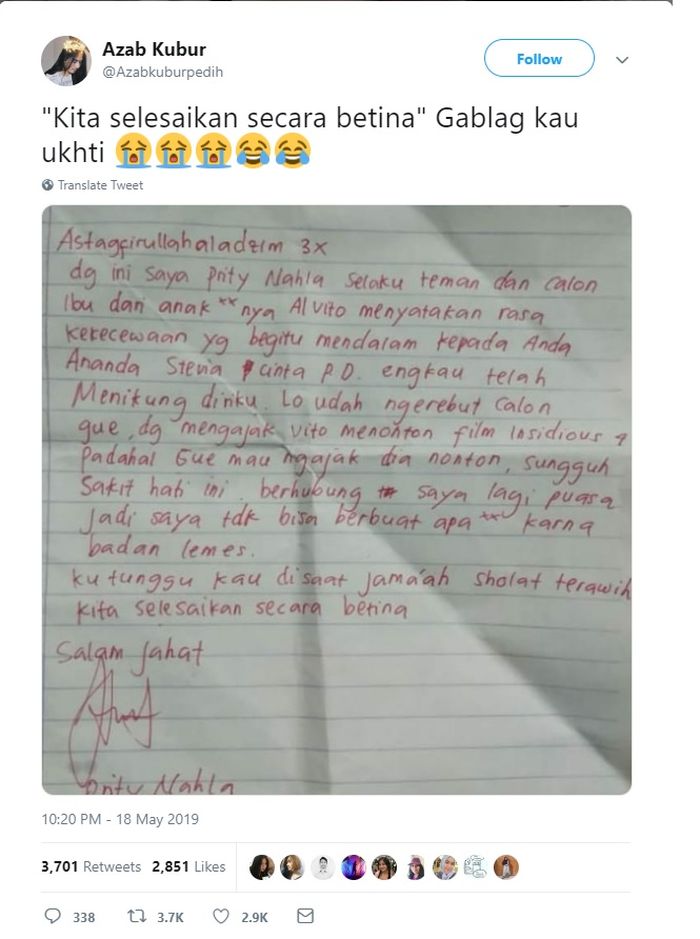 Azab Kubur
@Azabkuburpedih
Follow
"Kita selesaikan secara betina" Gablag kau
ukhti 😭😭😭😂😂
Translate Tweet
Astagfirullahaladzim 3x
dg ini saya Prity Nahla selaku teman dan calon
Ibu dari anak **nya Al Vito menyatakan rasa
kekecewaan yg begitu mendalam kepada Anda
Ananda Stevia Cinta P.D. engkau telah
Menikung diriku. Lo udah ngerebut calon
gue, dg mengajak Vito menonton film Insidious 4
Padahal Gue mau ngajak dia nonton, sungguh
Sakit hati ini. berhubung saya lagi puasa
Jadi saya tdk bisa berbuat apa ** karna
badan lemes.
ku tunggu kau disaat jama'ah sholat terawih
kita selesaikan secara betina
Salam Jahat
Prity Nahla
10:20 PM - 18 May 2019
3,701 Retweets 2,851 Likes
338 3.7K 2.9K